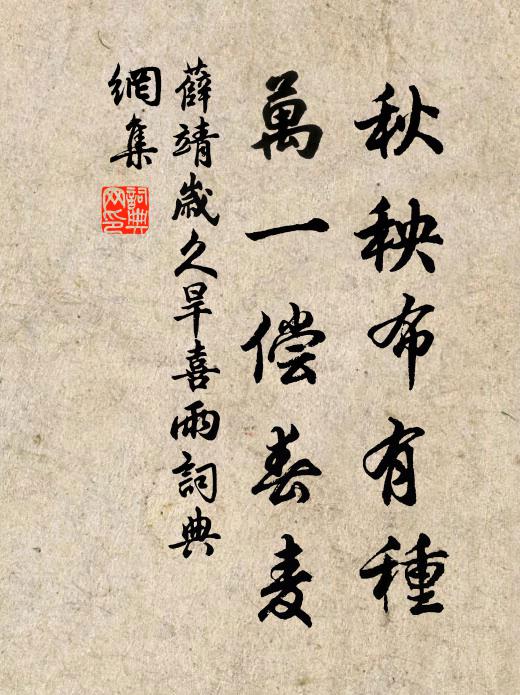 秋秧布有種
萬一偿春麦
薛靖歲久旱喜雨詞典
網集
詞典网印